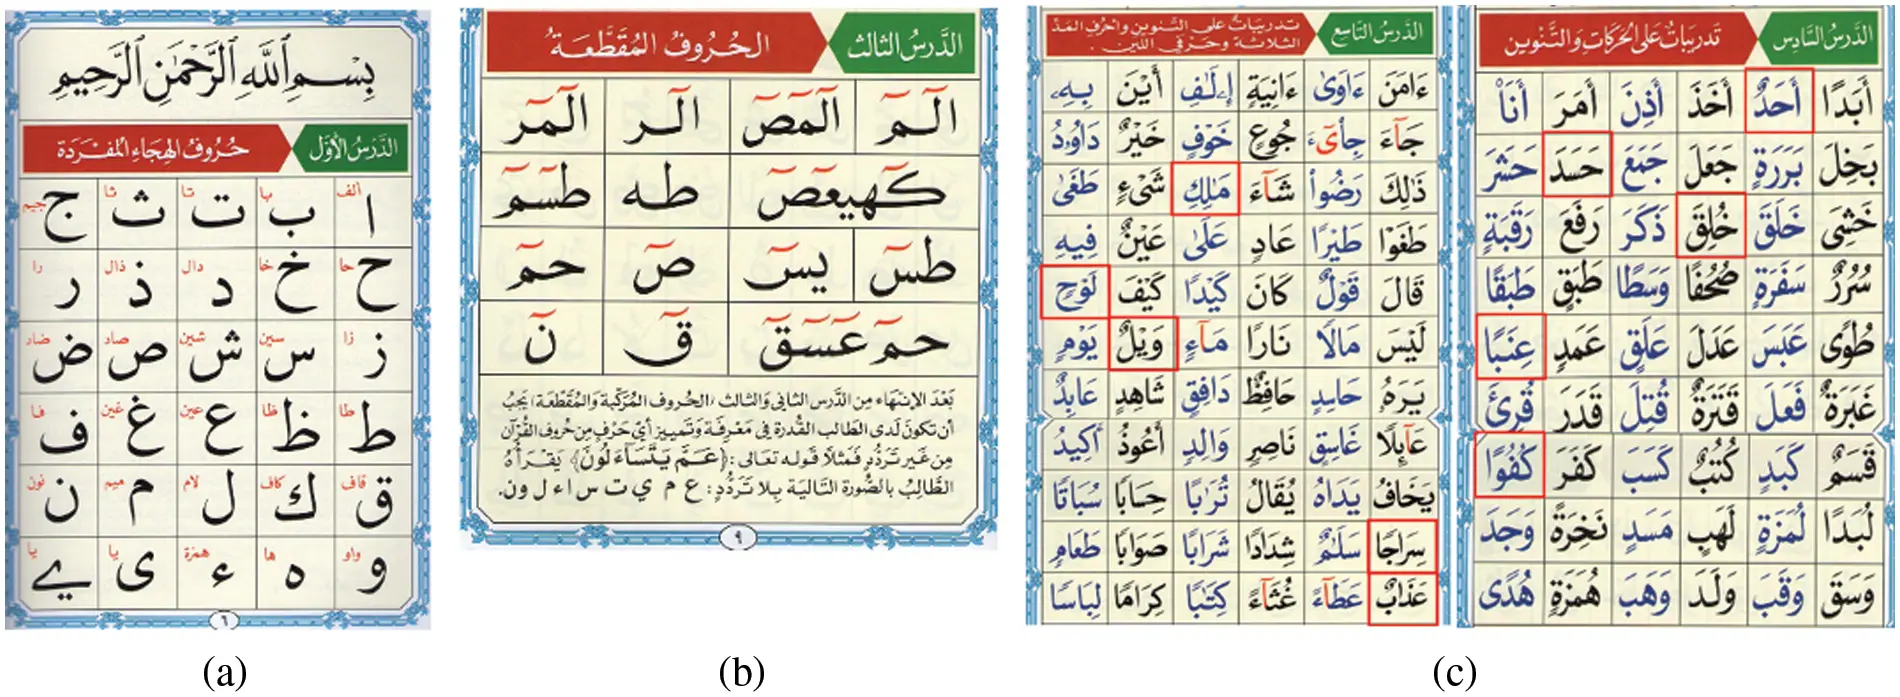 بِسْمِ ٱللَّهِ ٱلرَّحْمَٰنِ ٱلرَّحِيمِ
الدَّرسُ الأوّل حُرُوفُ الهِجَاءِ المُفْرَدَة
ألف ا با ب تا ت ثا ث جيم ج
حا ح خا خ دال د ذال ذ را ر
زا ز سين س شين ش صاد ص ضاد ض
طا ط ظا ظ عين ع غين غ فا ف
قاف ق كاف ك لام ل ميم م نون ن
واو و ها ه همزة ء يا ى يا ے
٦
(a)
الدَّرسُ الثالث الحُرُوفُ المُقَطَّعَةُ
الٓمٓ الٓمٓصٓ الٓر الٓمٓر
كٓهيعٓصٓ طه طسٓمٓ
طسٓ يسٓ صٓ حمٓ
حمٓ عٓسٓقٓ قٓ نٓ
بَعْدَ الاِنتِهَاء مِنَ الدَّرسِ الثاني وَالثالث (الحُروف المُرَكّبَة وَالمُقَطَّعَة) يَجبُ
أن تكونَ لَدى الطَالب القُدرة فِي مَعْرِفَة وَتَمييز أيّ حَرْفٍ مِن حُروفِ القُرآن
مِن غَير تَردُّدٍ فَمَثلاً قَوله تعَالى: ﴿عَمَّ يَتَسَآءَلُونَ﴾ يَقرَأهُ
الطّالِبُ بالصُّورة التاليَة بِلا تَردُّدٍ: ع م ي ت س ا ء ل و ن.
٩
(b)
الدَّرسُ التاسِع تَدريبَاتُ على التَّنوين وَأحْرُفِ المَدّ
الثلاثة وَحَرفَي اللين.
ءَامَنَ ءَاوَىٰ ءَانِيَةٍ إِۦلَٰفِ أَيْنَ بِهِۦ
جَآءَ جِاْىٓءَ جُوعٍ خَوْفٍ خَيْرٌ دَاوُۥدُ
ذَٰلِكَ رَضُواْ شَآءَ مَٰلِكِ شَىْءٍ طَغَىٰ
طَغَوْا طَيْرًا عَادٍ عَلَىٰ عَيْنٌ فِيهِ
قَالَ قَوْلٌ كَانَ كَيْدًا كَيْفَ لَوْحٍ
لَيْسَ مَالًا نَارًا مَآءٍ وَيْلٌ يَوْمٍ
يَرَهُۥ حَامِدٍ حَافِظٌ دَافِقٍ شَاهِدٍ عَابِدٌ
عَآئِلًا غَاسِقٍ نَاصِرٍ وَالِدٍ أَعُوذُ أَكِيدُ
يَخَافُ يَدَاهُ يُقَالُ تُرَابًا حِسَابًا سُبَاتًا
سِرَاجًا سَلَٰمٌ شِدَادًا شَرَابًا صَوَابًا طَعَامٍ
عَذَابٌ عَطَآءً غُثَآءً كِتَٰبًا كِرَامًا لِبَاسًا
الدَّرسُ السَّادِس تَدريبَاتُ على الحَرَكات وَالتَّنْوين
أَبَدًا أَحَدٌ أَخَذَ أَذِنَ أَمَرَ أَنَا۠
بَخِلَ بَرَرَةٍ جَعَلَ جَمَعَ حَسَدَ حَشَرَ
خَشِىَ خَلَقَ خُلِقَ ذَكَرَ رَفَعَ رَقَبَةٍ
سُرُرٌ سَفَرَةٍ صُحُفًا وَسَطًا طَبَقٍ طَبَقًا
طُوًى عَبَسَ عَدَلَ عَلَقٍ عَمَدٍ عِنَبًا
غَبَرَةٌ فَعَلَ قَتَرَةٌ قُتِلَ قَدَرَ قُرِئَ
قَسَمٌ كَبَدٍ كُتُبٌ كَسَبَ كَفَرَ كُفُوًا
لُبَدًا لُمَزَةٍ لَهَبٍ مَسَدٍ نَخِرَةً وَجَدَ
وَسَقَ وَقَبَ وَلَدَ وَهَبَ هُمَزَةٍ هُدًى
(c)